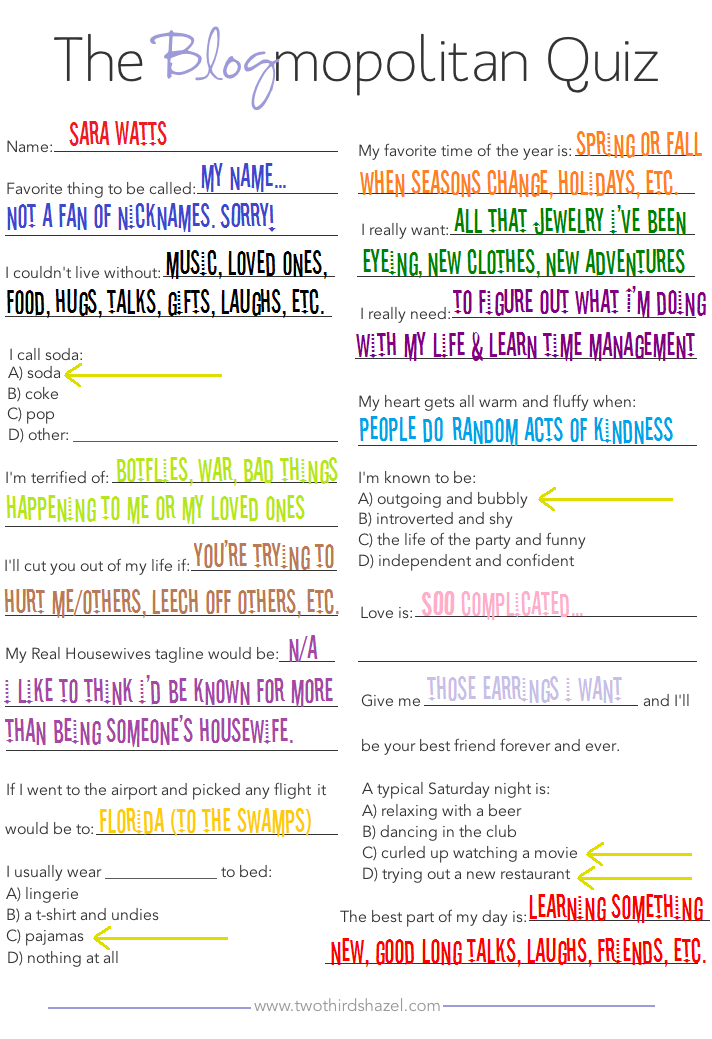 The Blogmopolitan Quiz
Name: SARA WATTS
Favorite thing to be called: MY NAME...
NOT A FAN OF NiCKNAMES. SORRY!
I couldn't live without: MUSiC, LOVED ONES,
FOOD, HUGS, TALKS, GiFTS, LAUGHS, ETC.
I call soda:
A) soda
B) coke
C) pop
D) other:
I'm terrified of: BOTFLiES, WAR, BAD THiNGS
HAPPENiNG TO ME OR MY LOVED ONES
I'll cut you out of my life if: YOU'RE TRYiNG TO
HURT ME/OTHERS, LEECH OFF OTHERS, ETC.
My Real Housewives tagline would be: N/A
i LiKE TO THiNK i'D BE KNOWN FOR MORE
THAN BEiNG SOMEONE'S HOUSEWiFE.
If I went to the airport and picked any flight it
would be to: FLORiDA (TO THE SWAMPS)
I usually wear ______________ to bed:
A) lingerie
B) a t-shirt and undies
C) pajamas
D) nothing at all
My favorite time of the year is: SPRiNG OR FALL
WHEN SEASONS CHANGE, HOLiDAYS, ETC.
I really want: ALL THAT JEWELRY i'VE BEEN
EYEiNG, NEW CLOTHES, NEW ADVENTURES
I really need: TO FiGURE OUT WHAT i'M DOiNG
WiTH MY LiFE & LEARN TiME MANAGEMENT
My heart gets all warm and fluffy when:
PEOPLE DO RANDOM ACTS OF KiNDNESS
I'm known to be:
A) outgoing and bubbly
B) introverted and shy
C) the life of the party and funny
D) independent and confident
Love is: SOO COMPLiCATED...
Give me THOSE EARRiNGS i WANT and I'll
be your best friend forever and ever.
A typical Saturday night is:
A) relaxing with a beer
B) dancing in the club
C) curled up watching a movie
D) trying out a new restaurant
The best part of my day is: LEARNiNG SOMETHiNG
NEW, GOOD LONG TALKS, LAUGHS, FRiENDS, ETC.
www.twothirdshazel.com